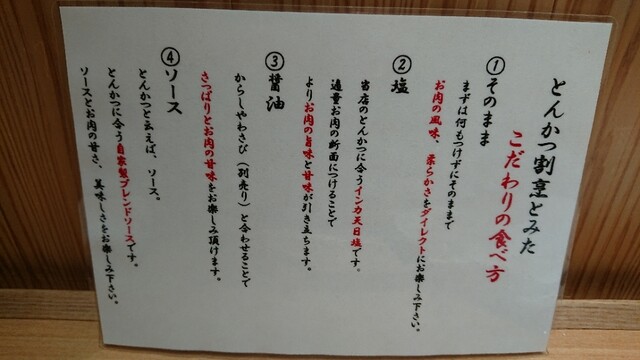 とんかつ割烹とみた
こだわりの食べ方
①そのまま
まずは何もつけずにそのままで
お肉の風味、柔らかさをダイレクトにお楽しみ下さい。
②塩
当店のとんかつに合うインカ天日塩です。
適量お肉の断面につけることで
よりお肉の旨味と甘味が引き立ちます。
③醤油
からしやわさび（別売り）と合わせることで
さっぱりとお肉の甘味をお楽しみ頂けます。
④ソース
とんかつと云えば、ソース。
とんかつに合う自家製ブレンドソースです。
ソースとお肉の甘さ、美味しさをお楽しみ下さい。